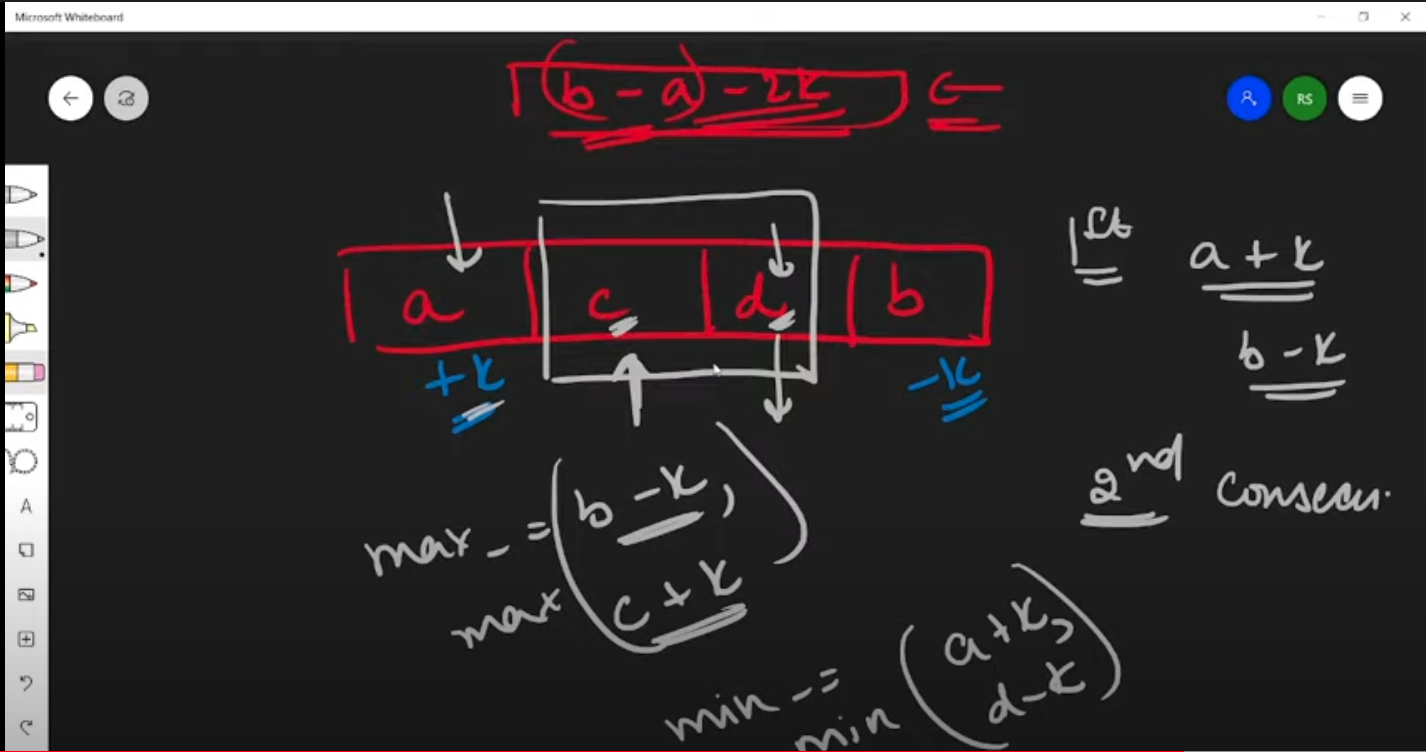 Microsoft Whiteboard
(b - a) - 2k
RS
a c d b
+k
-k
1st a + k
b - k
2nd Consecu.
max_ = max (b - k, c + k)
min_ = min (a + k, d - k)
A